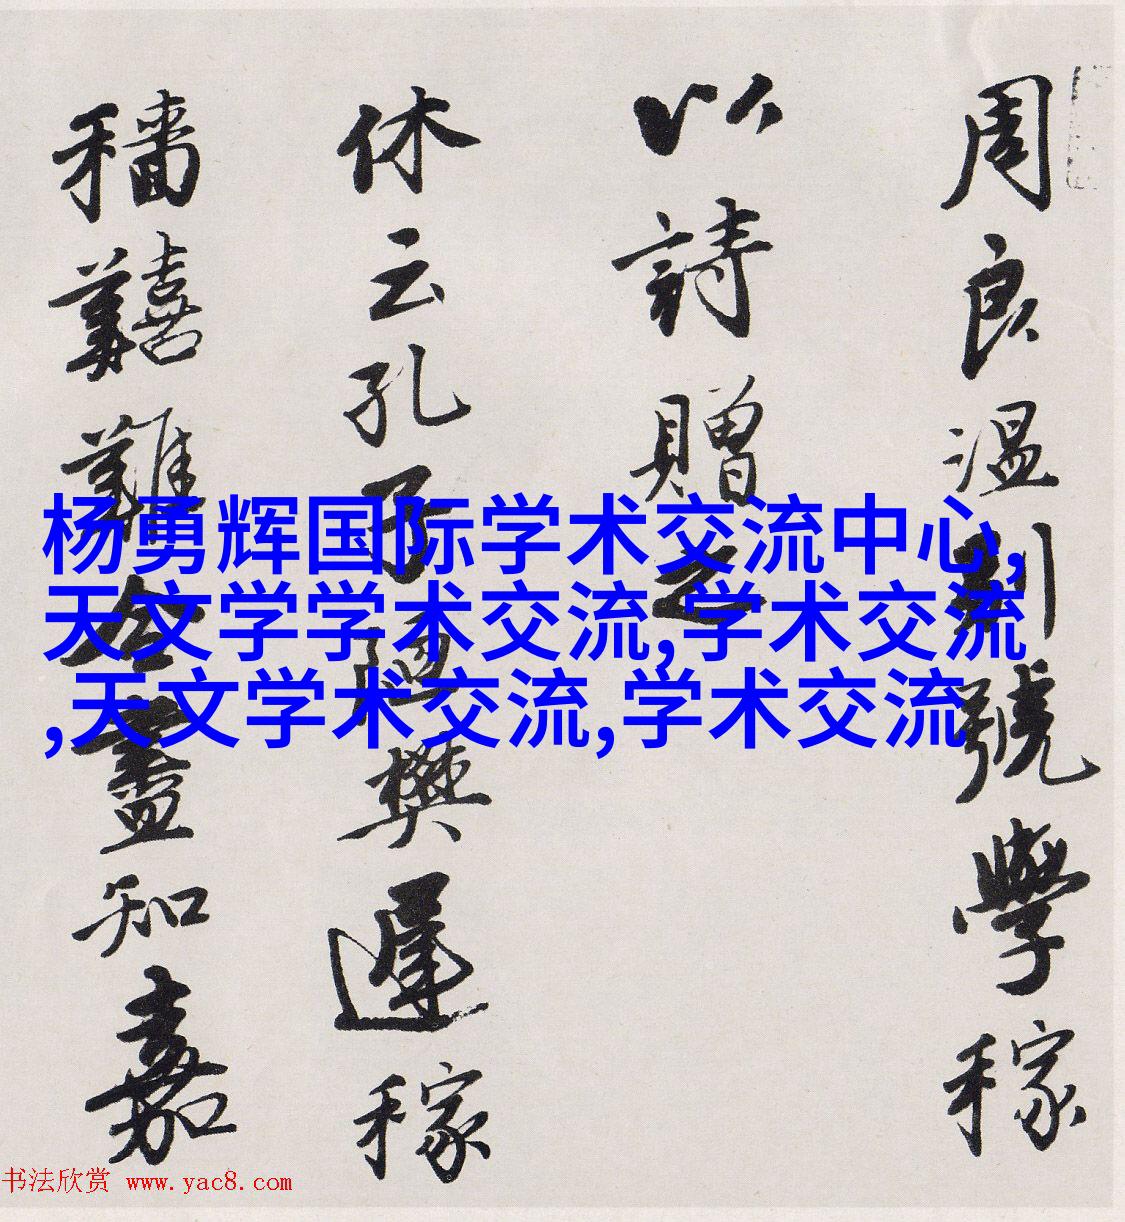 周良温別號學稼
以詩贈之
休云孔子樊遲稼
穡囏難盡知嘉
杨勇辉国际学术交流中心,
天文学学术交流,学术交流
,天文学术交流,学术交流
书法欣赏 www.yac8.com